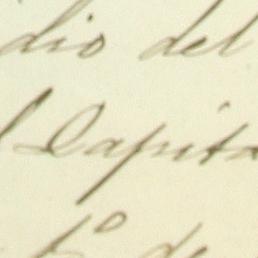 dio del
l Capita
1º de